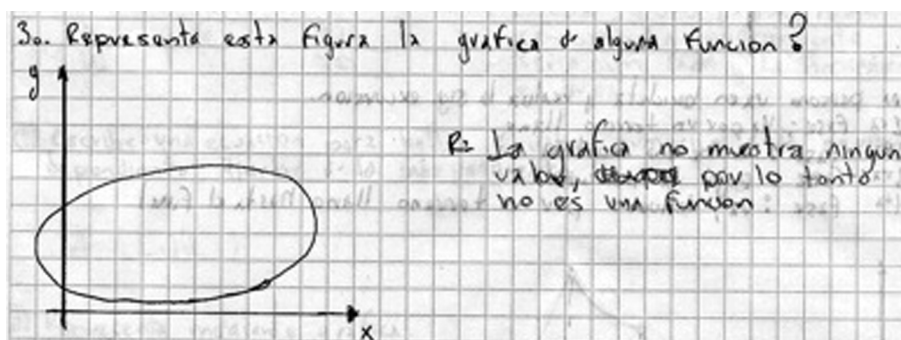 3o. Representa esta figura la grafica de alguna funcion?
y
R= La grafica no muestra ningun
valor, por lo tanto
no es una funcion
x